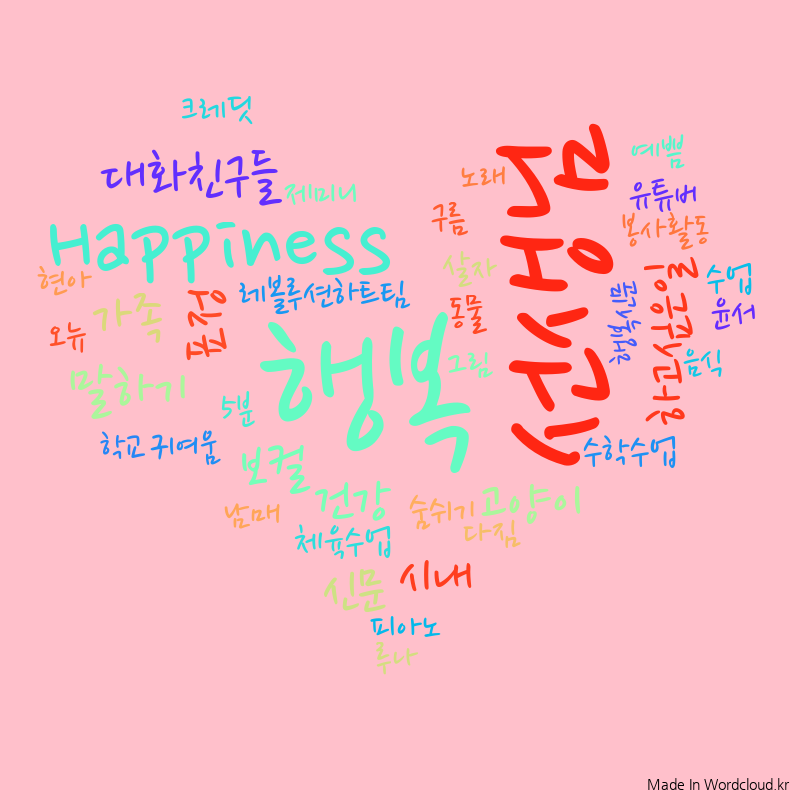 크레딧
대화친구들
제미니
노래
예쁨
유튜버
구름
봉사활동
Happiness
현아
살자
수업
레볼루션하트팀
표정
가족
동물
윤서
오뉴
행복
그림
음식
말하기
5분
학교
귀여움
수학수업
보컬
건강
남매
숨쉬기
고양이
다짐
체육수업
신문
시내
피아노
루나
Made In Wordcloud.kr